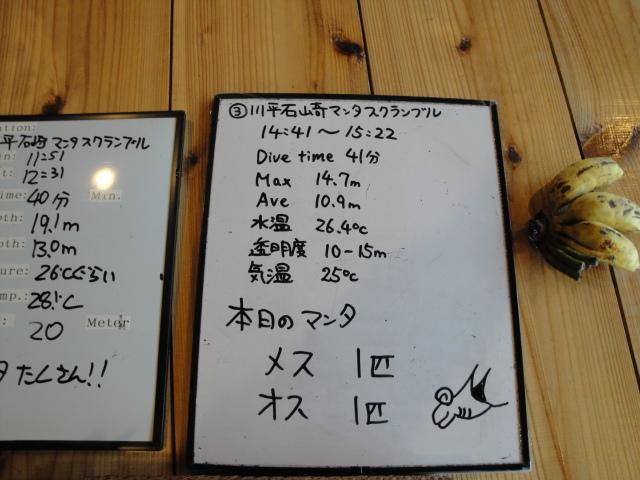 ation:
平石崎マンタスクランブル
in: 11:51
t: 12:31
ime: 40分 Min.
pth: 19.1m
pth: 13.0m
ure: 26℃ぐらい
mp.: 28.1℃
: 20 Meter
タ たくさん!!
③川平石山奇マンタスクランブル
14:41〜15:22
Dive time 41分
Max 14.7m
Ave 10.9m
水温 26.4℃
透明度 10-15m
気温 25℃
本日のマンタ
メス 1匹
オス 1匹